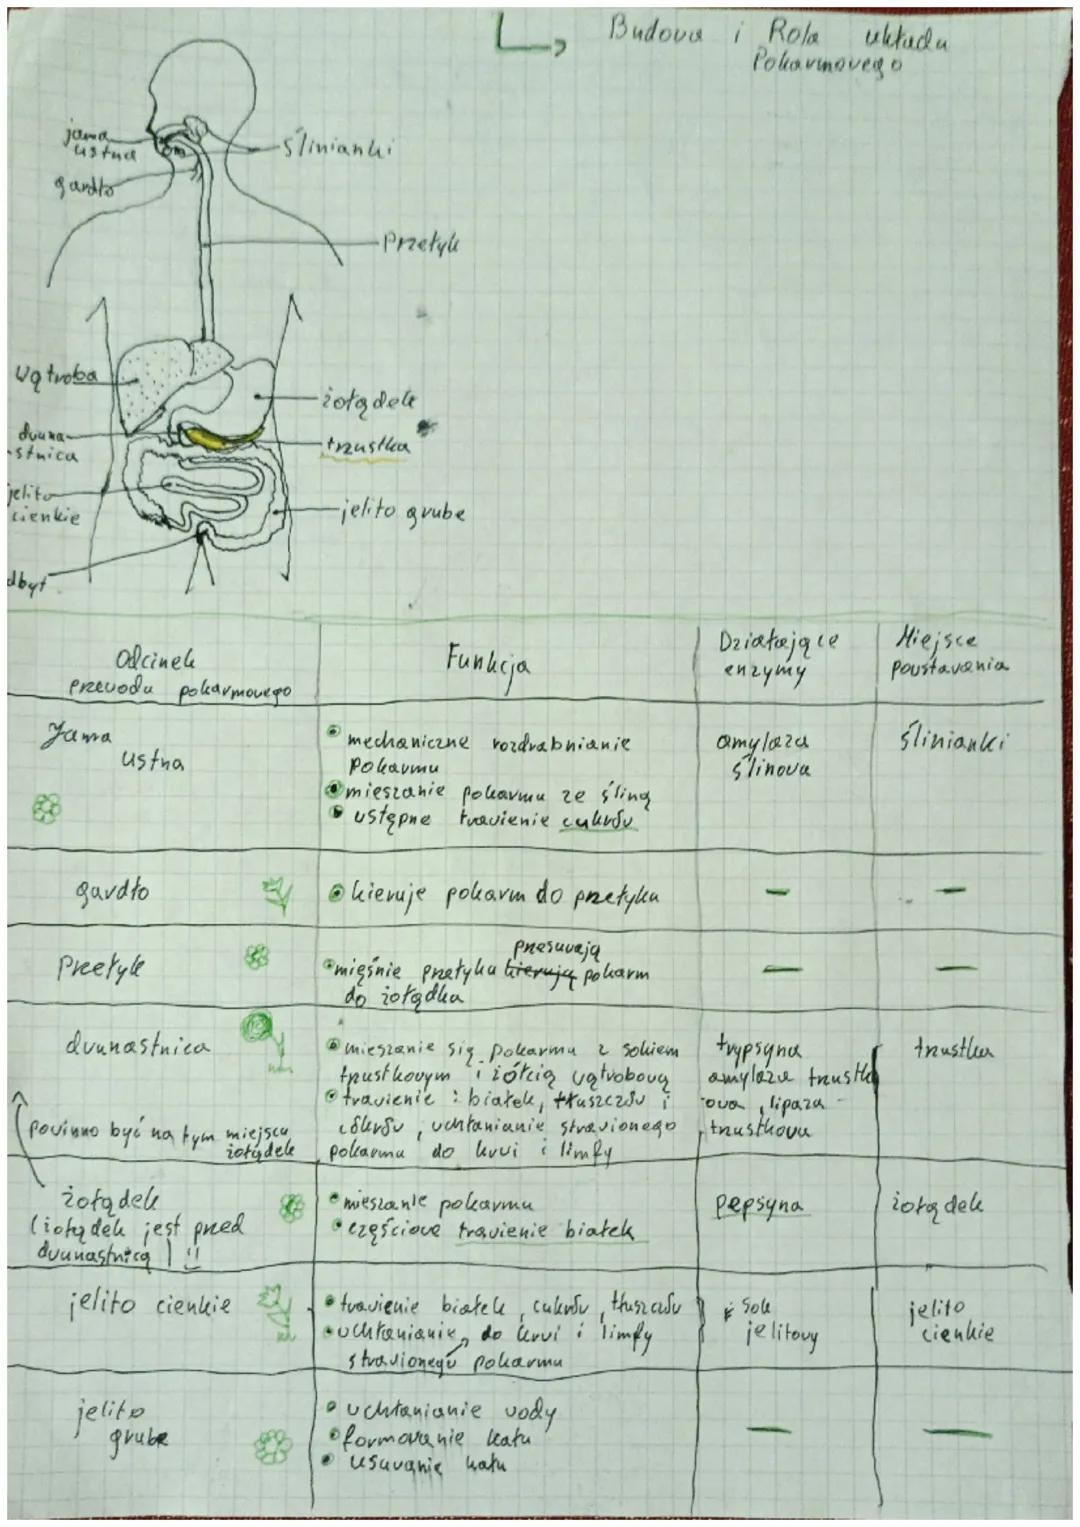 Budowa i Rola układu
Pokarmowego
jama
ustna
ślinianki
gardło
Przełyk
Wątroba
żołądek
dwuna-
-stnica
trzustka
jelito
cienkie
jelito grube
dbyt
Odcinek
przewodu pokarmowego
Funkcja
Działające
enzymy
Miejsce
powstawania
Jama
ustna
mechaniczne rozdrabnianie
pokarmu
mieszanie pokarmu ze śliną
wstępne trawienie cukrów
amylaza
ślinowa
ślinianki
gardło
kieruje pokarm do przełyku
-
-
Przełyk
przesuwają
mięśnie przełyku kierują pokarm
do żołądka
-
-
dwunastnica
mieszanie się pokarmu z sokiem
trzustkowym i żółcią wątrobową
trawienie: białek, tłuszczów i
cukrów, wchłanianie strawionego
pokarmu do krwi i limfy
trypsyna
amylaza trzustk
-owa, lipaza
trzustkowa
trzustka
powinno być na tym miejscu
żołądek
żołądek
(żołądek jest przed
dwunastnicą) !!
mieszanie pokarmu
częściowe trawienie białek
pepsyna
żołądek
jelito cienkie
trawienie białek, cukrów, tłuszczów
wchłanianie do krwi i limfy
strawionego pokarmu
sok
jelitowy
jelito
cienkie
jelito
grube
wchłanianie wody
formowanie kału
usuwanie kału
-
-